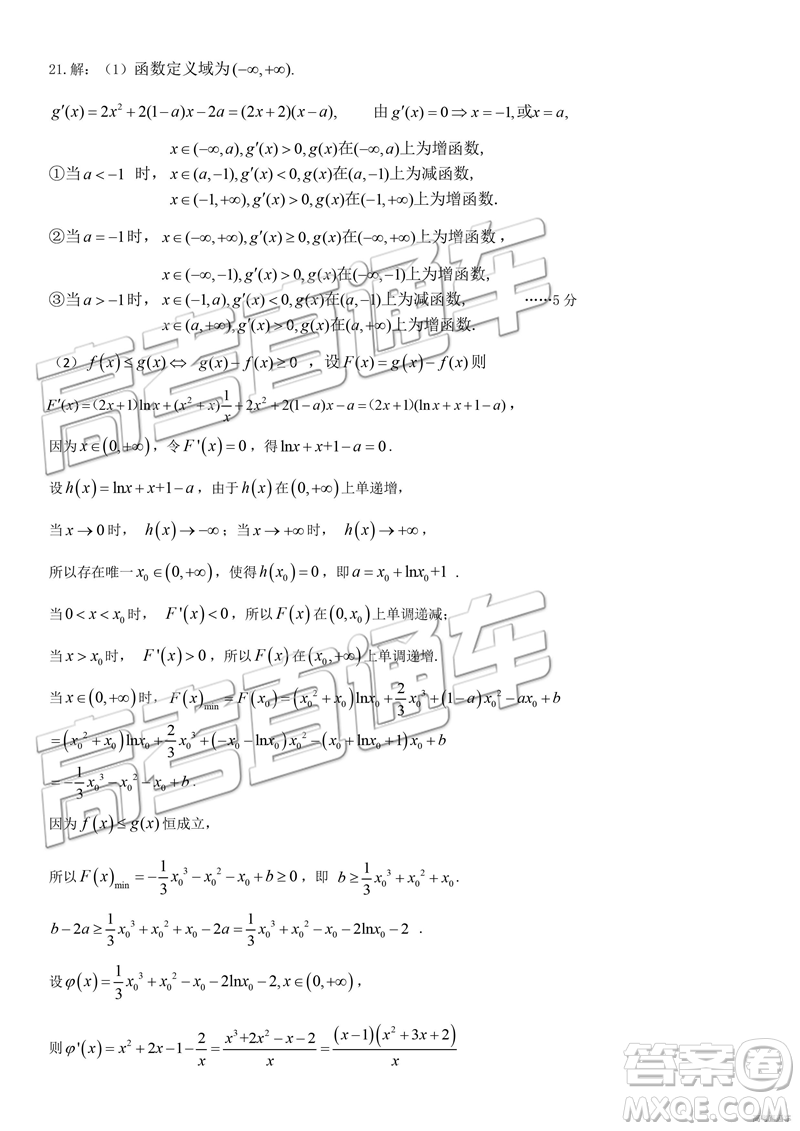 21.解：（1）函数定义域为(−∞,+∞).
g′(x)=2x²+2(1−a)x−2a=(2x+2)(x−a), 由g′(x)=0⇒x=−1,或x=a,
x∈(−∞,a),g′(x)>0,g(x)在(−∞,a)上为增函数,
①当a<−1 时，x∈(a,−1),g′(x)<0,g(x)在(a,−1)上为减函数,
x∈(−1,+∞),g′(x)>0,g(x)在(−1,+∞)上为增函数.
②当a=−1时，x∈(−∞,+∞),g′(x)≥0,g(x)在(−∞,+∞)上为增函数，
x∈(−∞,−1),g′(x)>0,g(x)在(−∞,−1)上为增函数,
③当a>−1时，x∈(−1,a),g′(x)<0,g(x)在(a,−1)上为减函数, ……5分
x∈(a,+∞),g′(x)>0,g(x)在(a,+∞)上为增函数.
（2）f(x)≤g(x)⇔ g(x)−f(x)≥0 ，设F(x)=g(x)−f(x)则
F′(x)=(2x+1)lnx+(x²+x)1/x+2x²+2(1−a)x−a=(2x+1)(lnx+x+1−a)，
因为x∈(0,+∞)，令F'(x)=0，得lnx+x+1−a=0.
设h(x)=lnx+x+1−a，由于h(x)在(0,+∞)上单递增，
当x→0时， h(x)→−∞；当x→+∞时， h(x)→+∞，
所以存在唯一x₀∈(0,+∞)，使得h(x₀)=0，即a=x₀+lnx₀+1 .
当0<x<x₀时， F'(x)<0，所以F(x)在(0,x₀)上单调递减；
当x>x₀时， F'(x)>0，所以F(x)在(x₀,+∞)上单调递增.
当x∈(0,+∞)时，F(x)min=F(x₀)=(x₀²+x₀)lnx₀+2/3x₀³+(1−a)x₀²−ax₀+b
=(x₀²+x₀)lnx₀+2/3x₀³+(−x₀−lnx₀)x₀²−(x₀+lnx₀+1)x₀+b
=−1/3x₀³−x₀²−x₀+b.
因为f(x)≤g(x)恒成立，
所以F(x)min=−1/3x₀³−x₀²−x₀+b≥0，即 b≥1/3x₀³+x₀²+x₀.
b−2a≥1/3x₀³+x₀²+x₀−2a=1/3x₀³+x₀²−x₀−2lnx₀−2 .
设φ(x)=1/3x₀³+x₀²−x₀−2lnx₀−2,x∈(0,+∞)，
则φ'(x)=x²+2x−1−2/x=(x³+2x²−x−2)/x=(x−1)(x²+3x+2)/x
高考直通车
高考直通车
答案卷
MXQE.COM